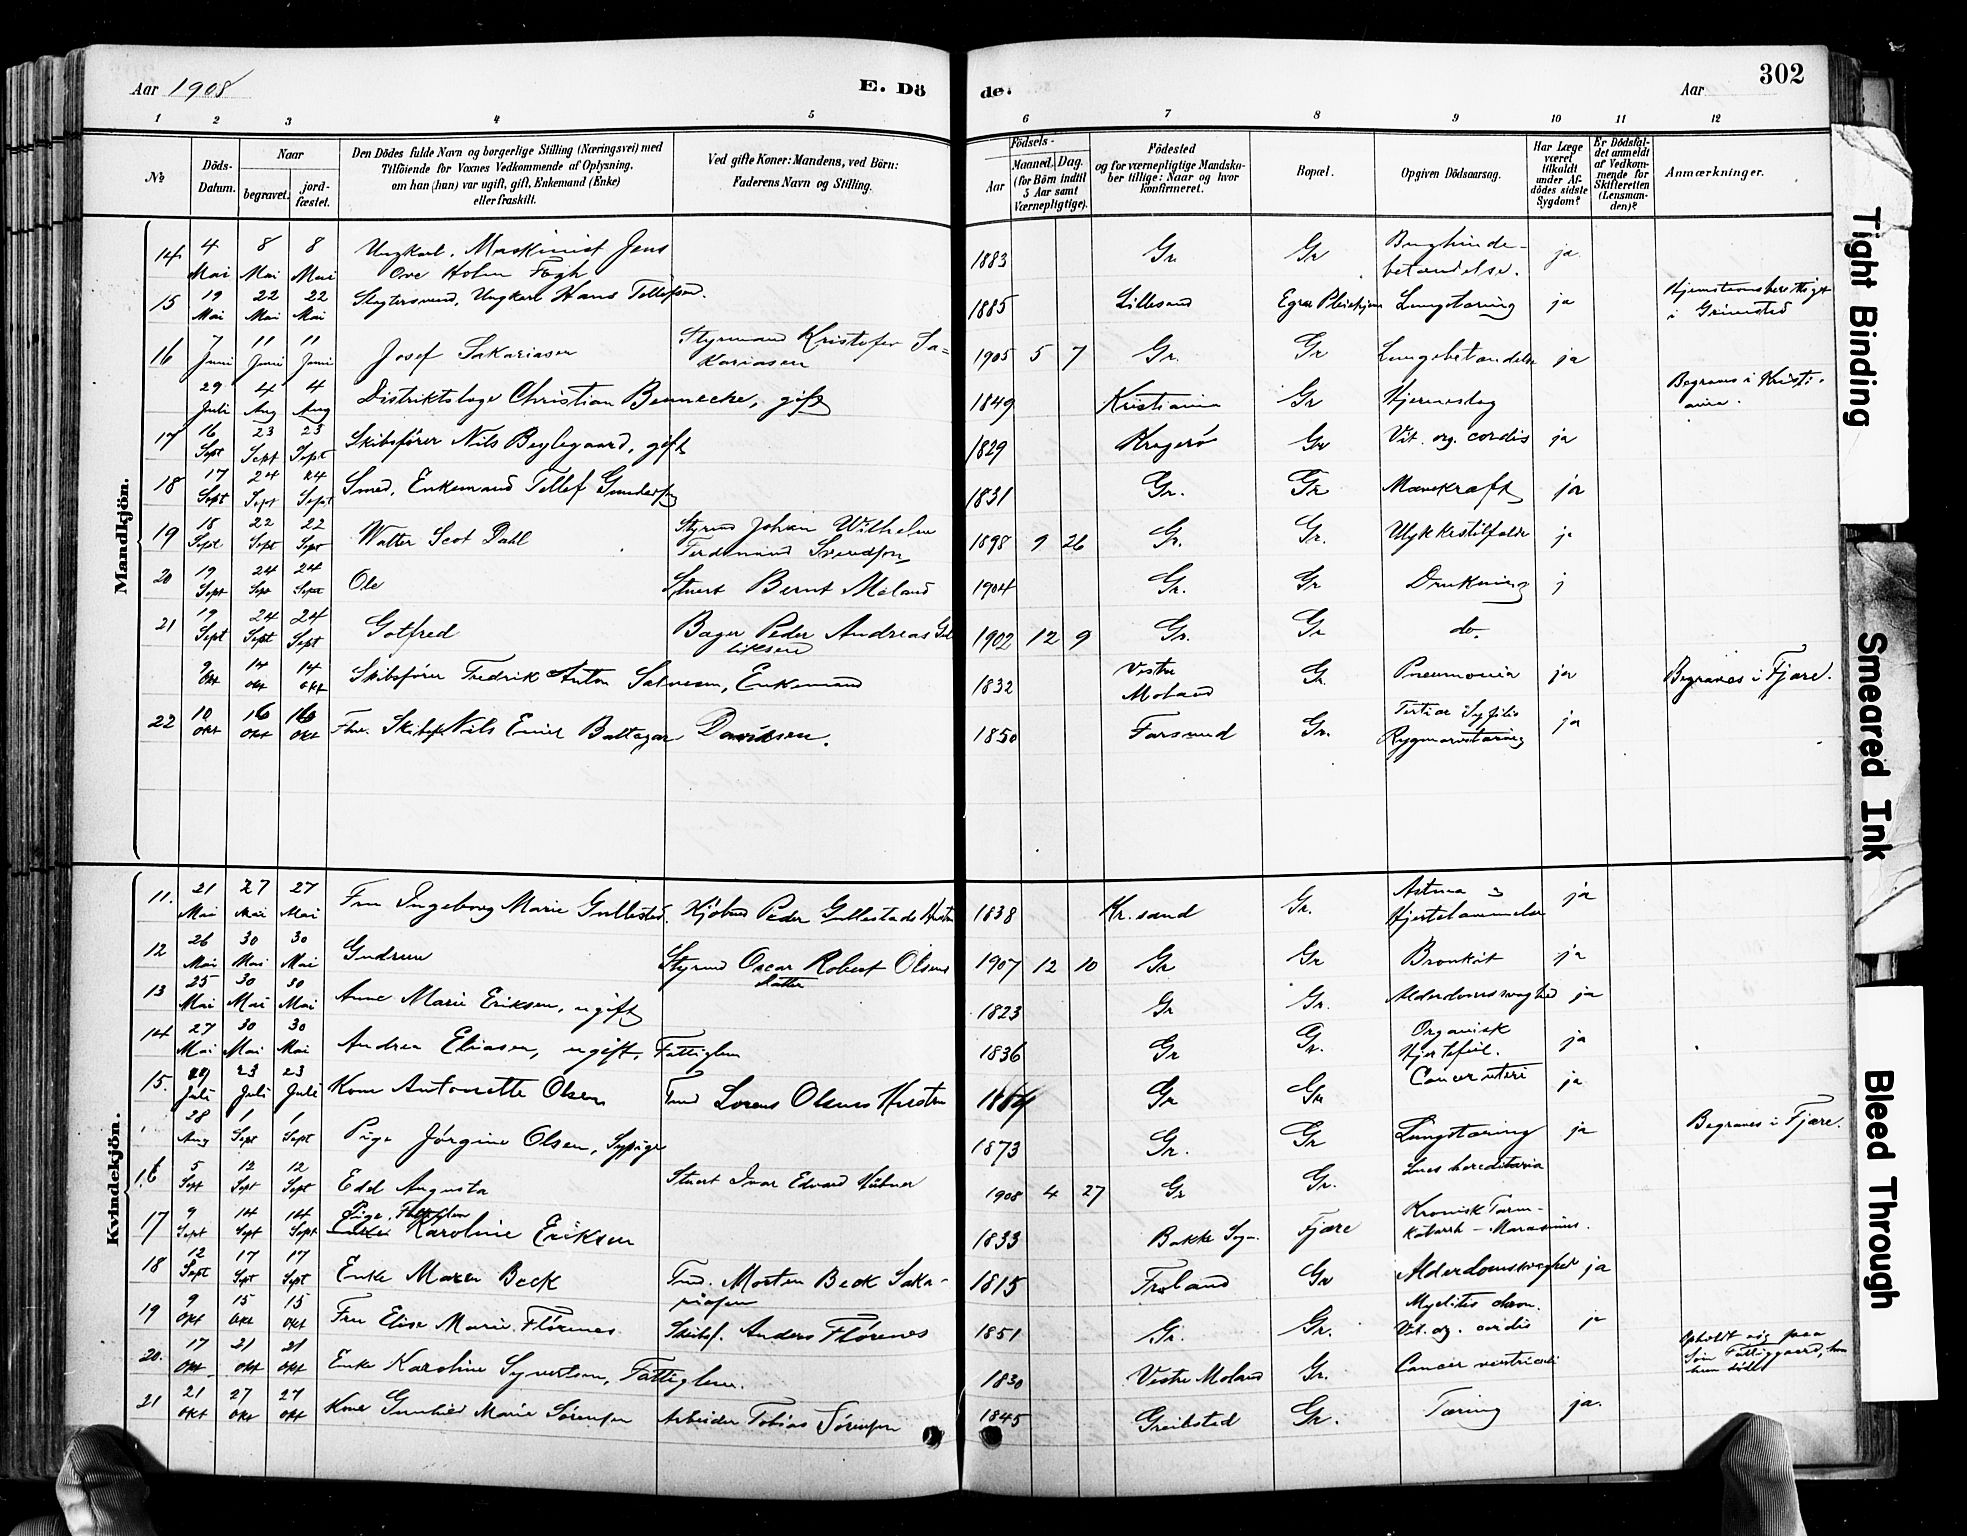 Aar 1908 E. Dö de. Aar 302
1 2 3 4 5 6 7 8 9 10 11 12
No
Döds-Datum.
Naar begravet. jordfæstet.
Den Dödes fulde Navn og borgerlige Stilling (Næringsvei) med
Tilföiende för Voxnes Vedkommende af Oplysning,
om han (hun) var ugift, gift, Enkemand (Enke)
eller fraskilt.
Ved gifte Koner: Mandens, ved Börn:
Faderens Navn og Stilling.
Födsels-
Aar Maaned. Dag.
(for Börn indtil
5 Aar samt
Værnepligtige).
Födested
og for værnepligtige Mandska-
ber tillige: Naar og hvor
konfirmeret.
Bopæl.
Opgiven Dödsaarsag.
Har Læge
været
tilkaldt
under Af-
dödes sidste
Sygdom?
Er Dödsfal-
det anmeldt
af Vedkom-
mende for
Skifteretten
(Lensman-
den)?
Anmærkninger.
Mandkjön.
14 4 Mai 8 Mai 8 Mai Ungkarl, Maskinist Jens
Ove Holm Fogh 1883 Gr Gr Bughinde-
betændelse. ja
15 19 Mai 22 Mai 22 Mai Ungkarl Hans Tellefsen. 1885 Lillesand Lungetæring ja Hjemstavnsberettiget
i Grimstad
16 7 Juni 11 Juni 11 Juni Josef Sakariasen Styrmand Kristofer Sa-
kariasen 1905 5 7 Gr. Gr Lungebetændelse ja
29 Juli 4 Aug 4 Aug Distriktslæge Christian Bennecke, gift 1849 Kristiania Gr Hjerneslag Begraves i Kristi-
ania.
17 16 Sept 23 Sept 23 Sept Skibsfører Nils Beylegaard, gift 1829 Kragerø Gr Vit. org. cordis ja
18 17 Sept 24 Sept 24 Sept Smed, Enkemand Tellef Gundersen 1831 Gr. Gr Mavekræft ja
19 18 Sept 22 Sept 22 Sept Walter Scot Dahl Styrmd Johan Wilhelm
Ferdinand Svendsen 1898 9 26 Gr. Gr. Ulykkestilfælde j
20 19 Sept 24 Sept 24 Sept Ole Stuert Bernt Moland 1904 Gr. Gr Drukning j
21 19 Sept 24 Sept 24 Sept Gotfred Bager Peder Andreas Gul
liksen 1902 12 9 Gr. Gr do.
9 Okt 14 okt 14 okt Skibsfører Fredrik Anton Salvesen, Enkemand 1832 Vestre
Moland Gr. Pneumonia ja Begraves i Fjære.
22 10 okt 16 okt 16 okt Fhv. Skibsf. Nils Emil Baltazar Davidsen. 1850 Farsund Gr. Tertiær Syfilis
Rygmarvstæring ja
Kvindekjön.
11. 21 Mai 27 Mai 27 Mai Fru Ingeborg Marie Gullestad. Kjøbmd Peder Gullestads Hustru 1838 Kr.sand Gr. Astma &
Hjertelammelse ja
12 26 Mai 30 Mai 30 Mai Gudrun Styrmd Oscar Robert Olsens
datter 1907 12 10 Gr Gr Bronkit ja
13 25 Mai 30 Mai 30 Mai Anne Marie Eriksen, ugift 1823 Gr Gr. Alderdomssvaghed ja
14 27 Mai 30 Mai 30 Mai Andrea Eliasen, ugift, Fattiglem 1836 Gr Gr. Organisk
Hjertefeil. ja
15. Juli 23 Juli 23 Juli Kone Antonette Olsen Tmd Lorens Olsens Hustru Gr Gr Cancer uteri ja
28 Aug 1 Sept 1 Sept Pige Jørgine Olsen, Sypige 1873 Gr. Gr Lungetæring ja Begraves i Fjære.
16 5 Sept 12 Sept 12 Sept Edel Augusta Stuert Ivar Edvard Hübner 1908 4 27 Gr Gr. Lues hereditaria
17 9 Sept 14 Sept 14 Sept Pige, Fattiglem
Karoline Eriksen 1833 Bakke Sogn Fjære Kronisk Tarm-
katarrh - Marasmus.
18 12 Sept 17 Sept 17 Sept Enke Maren Beck Tmd. Morten Beck Saka-
riasen 1815 Froland Gr Alderdomssvaghed ja
19 9 okt 15 okt 15 okt Fru Elise Marie Flørenes Skibsf. Anders Flørenes 1851 Gr. Gr. Myelitis chron.
Vit. og. cordis ja
20. 17 okt 21 okt 21 okt Enke Karoline Syvertsen, Fattiglem. 1830 Vestre Moland Gr. Cancer ventriculi opholdt sig paa
Fattiggaard, hvor
hun døde
21 21 okt 27 okt 27 okt Kone Gunhild Marie Sørensen Arbeider Tobias Sørensen 1845 Greibsted Gr. Tæring ja.
Tight Binding
Smeared Ink
Bleed Through